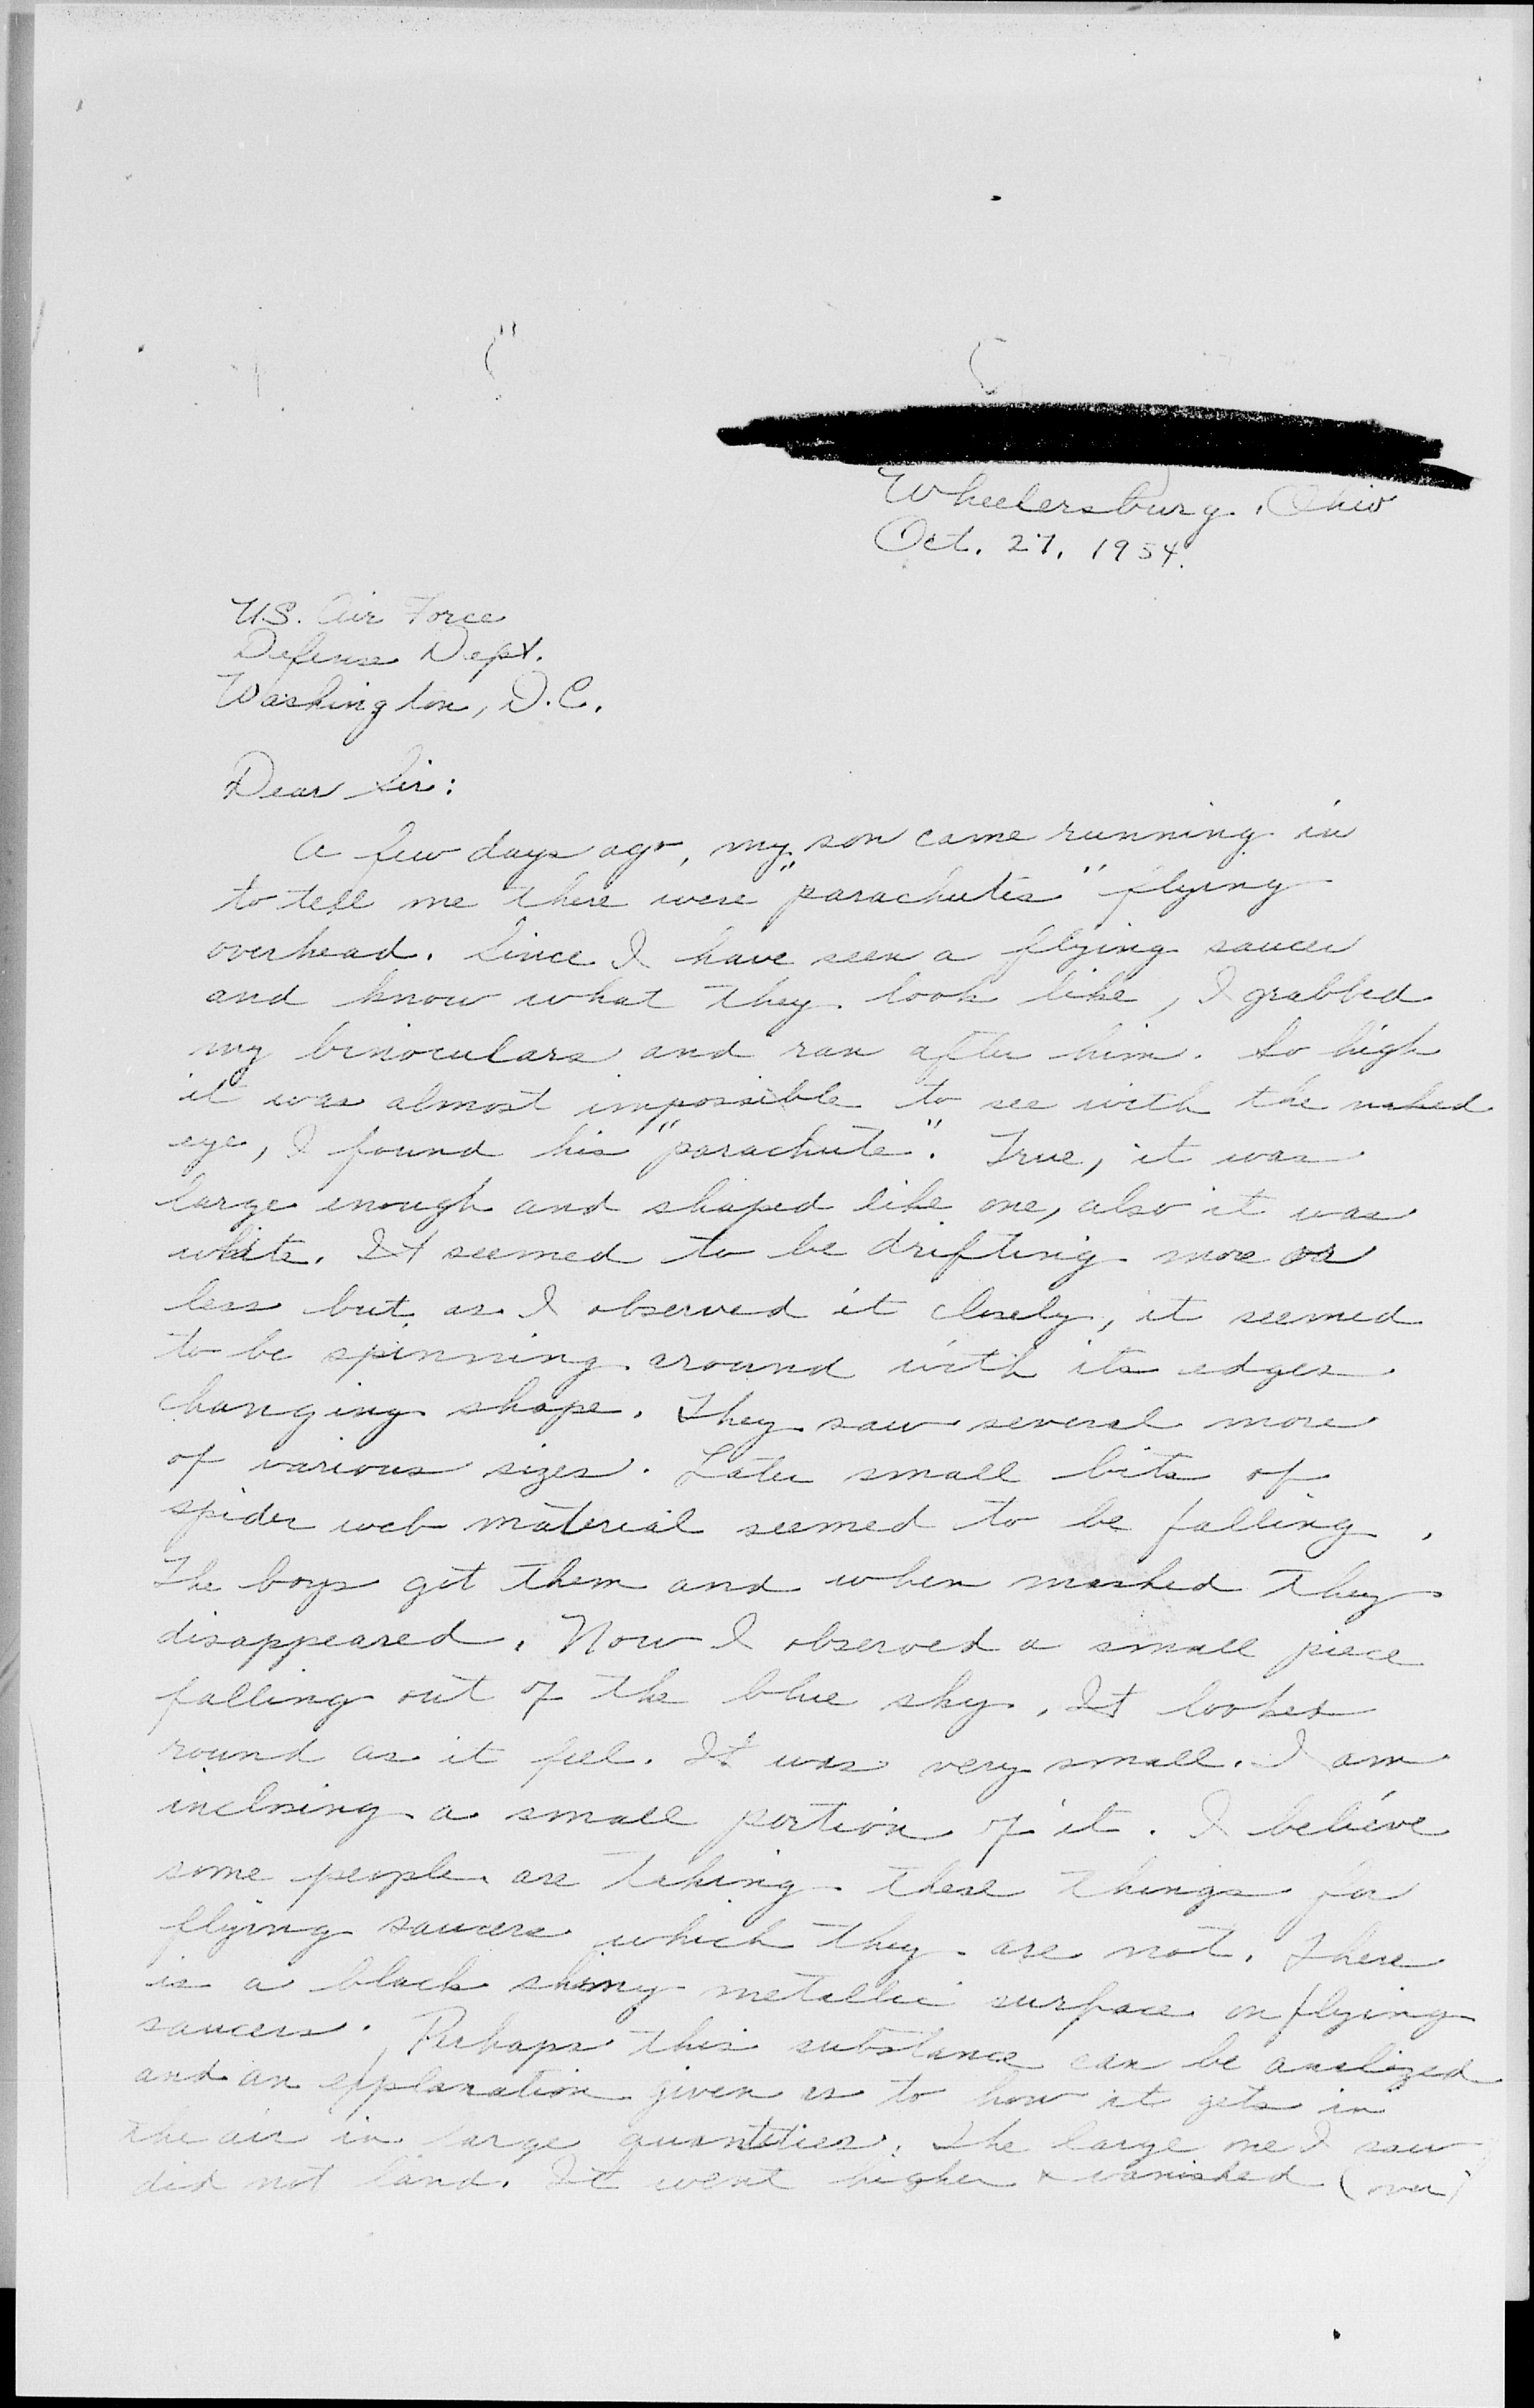 Wheelersburg, Ohio
Oct. 27, 1954.
U.S. Air Force
Defense Dept.
Washington, D.C.
Dear Sir:
A few days ago, my son came running in
to tell me there were "parachutes" flying
overhead. Since I have seen a flying saucer
and know what they look like, I grabbed
my binoculars and ran after him. So high
it was almost impossible to see with the naked
eye, I found his "parachute". True, it was
large enough and shaped like one, also it was
white. It seemed to be drifting more or
less but as I observed it closely, it seemed
to be spinning around with its edges
changing shape. They saw several more
of various sizes. Later small bits of
spider web material seemed to be falling.
The boys got them and when mashed they
disappeared. Now I observed a small piece
falling out of the blue sky. It looked
round as it fell. It was very small. I am
inclosing a small portion of it. I believe
some people are taking these things for
flying saucers which they are not. There
is a black shiny metallic surface on flying
saucers. Perhaps this substance can be analized
and an explanation given as to how it gets in
the air in large quantities. The large one I saw
did not land. It went higher & vanished (over)